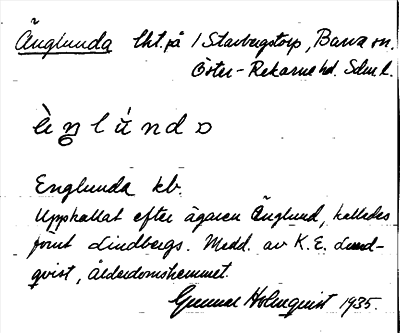 Änglunda lht. på 1 Starbergstorp, Barva sn.
Öster-Rekarne hd. Sdm l.
Englunda kb.
Uppkallat efter ägaren Änglund, kallades
förut Lindbergs. Medd. av K. E. Lund-
qvist, ålderdomshemmet.
Gunnar Holmquist 1935.